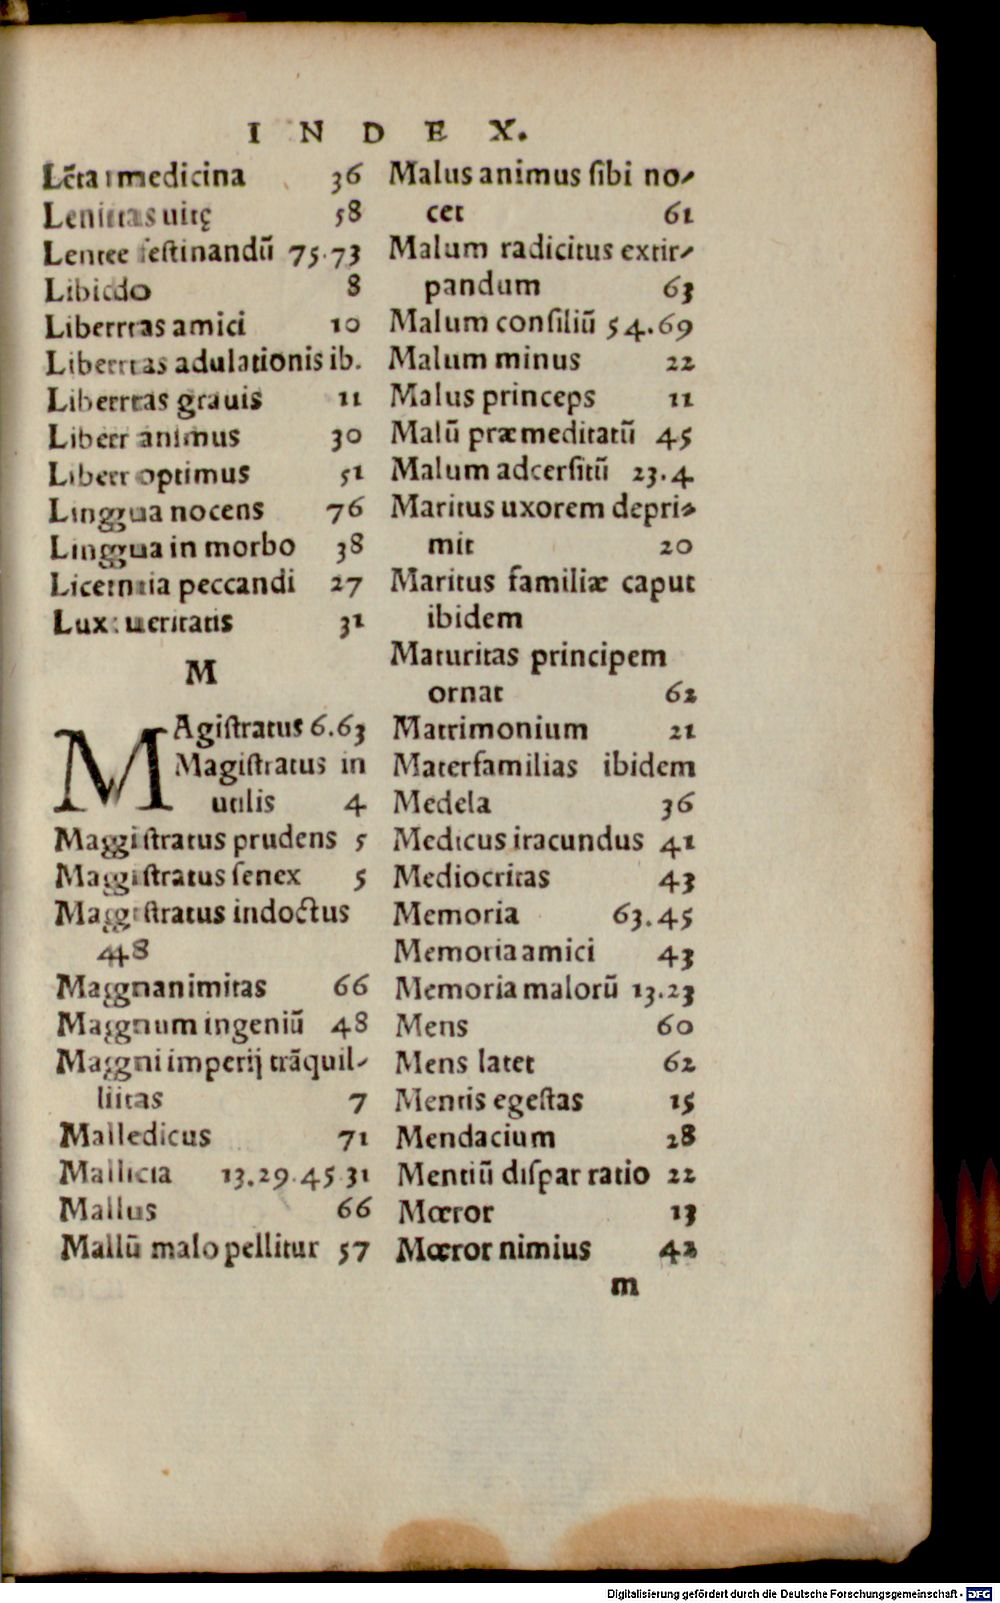 INDEX.
Lēta medicina 36
Lenitas uitę 58
Lente festinandū 75.73
Libido 8
Libertas amici 10
Libertas adulationis ib.
Libertas grauis 11
Liber animus 30
Liber optimus 51
Lingua nocens 76
Lingua in morbo 38
Licentia peccandi 27
Lux ueritatis 31
M
MAgistratus 6.63
Magistratus in
utilis 4
Magistratus prudens 5
Magistratus senex 5
Magistratus indoctus
48
Magnanimitas 66
Magnum ingeniū 48
Magni imperij trāquil-
litas 7
Maledicus 71
Malicia 13.29.45.31
Malus 66
Malū malo pellitur 57
Malus animus sibi no-
cet 61
Malum radicitus extir-
pandum 63
Malum consiliū 54.69
Malum minus 22
Malus princeps 11
Malū præmeditatū 45
Malum adcersitū 23.4
Maritus uxorem depri-
mit 20
Maritus familiæ caput
ibidem
Maturitas principem
ornat 62
Matrimonium 21
Materfamilias ibidem
Medela 36
Medicus iracundus 41
Mediocritas 43
Memoria 63.45
Memoria amici 43
Memoria malorū 13.23
Mens 60
Mens latet 62
Mentis egestas 15
Mendacium 28
Mentiū dispar ratio 22
Mœror 13
Mœror nimius 42
m
Digitalisierung gefördert durch die Deutsche Forschungsgemeinschaft - DFG